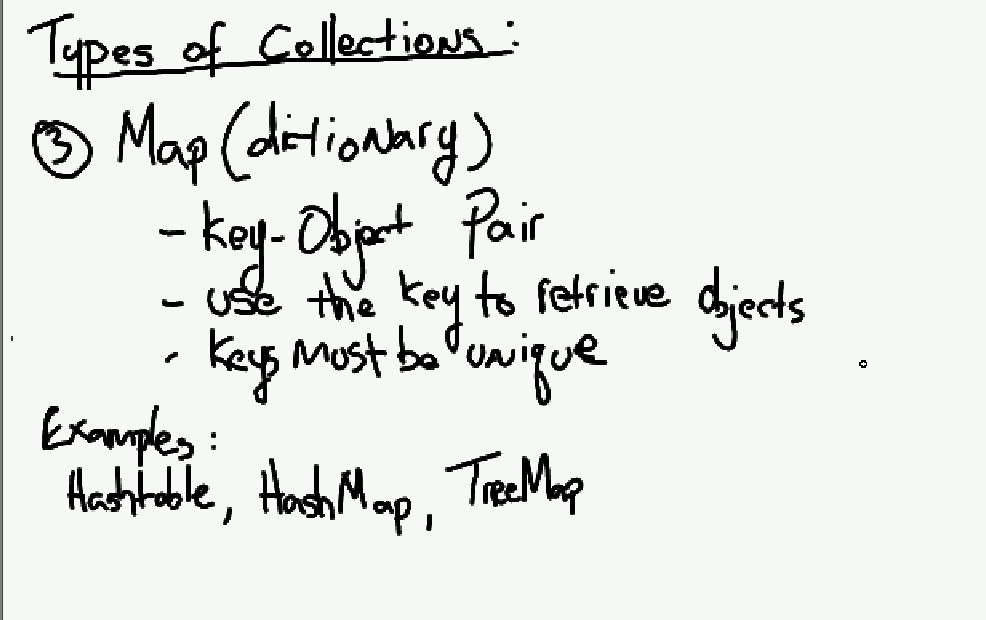 Types of Collections:
③ Map (dictionary)
- Key-Object Pair
- use the key to retrieve objects
- Keys must be unique
Examples:
Hashtable, HashMap, TreeMap